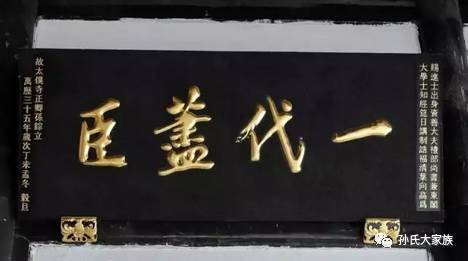 賜進士出身資善大夫禮部尚書兼東閣
大學士知經筵日講制誥福清葉向高爲
一代藎臣
故太僕寺正卿孫錝立
萬歷三十五年歲次丁未孟冬 穀旦
孙氏大家族